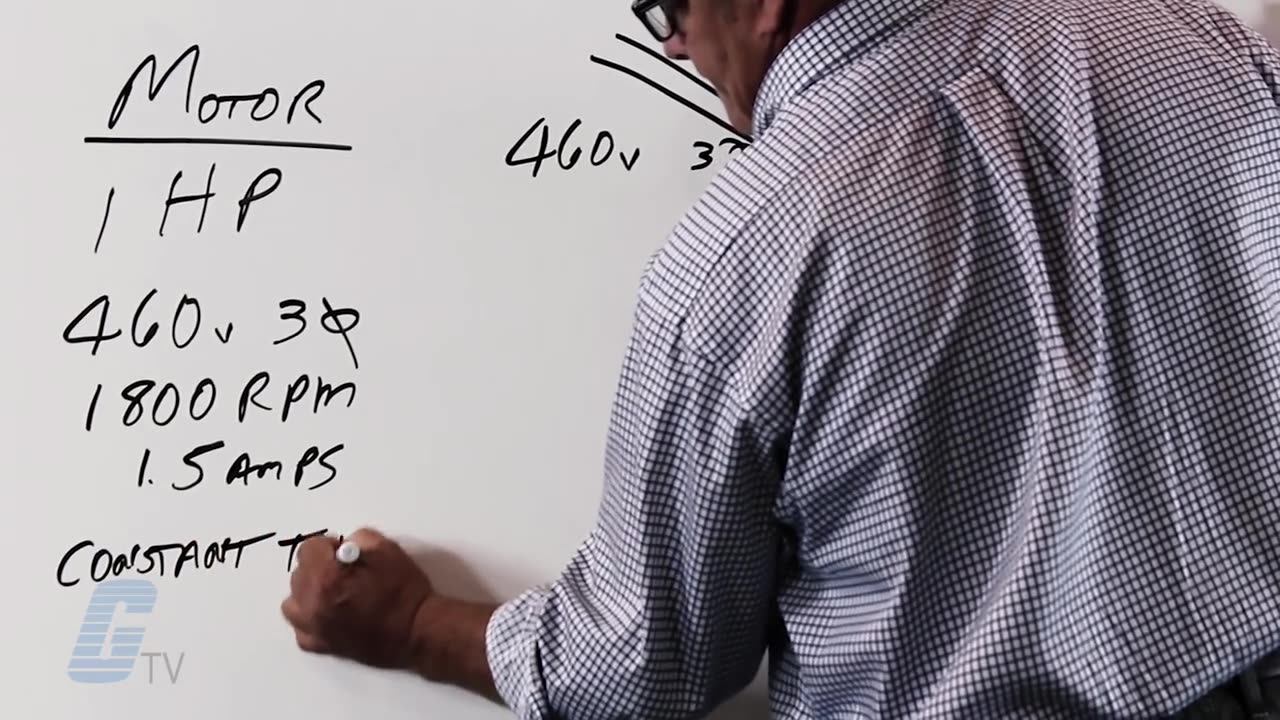 MOTOR
1 HP
460v 3Φ
1800 RPM
1.5 AMPS
CONSTANT
460v
GTV